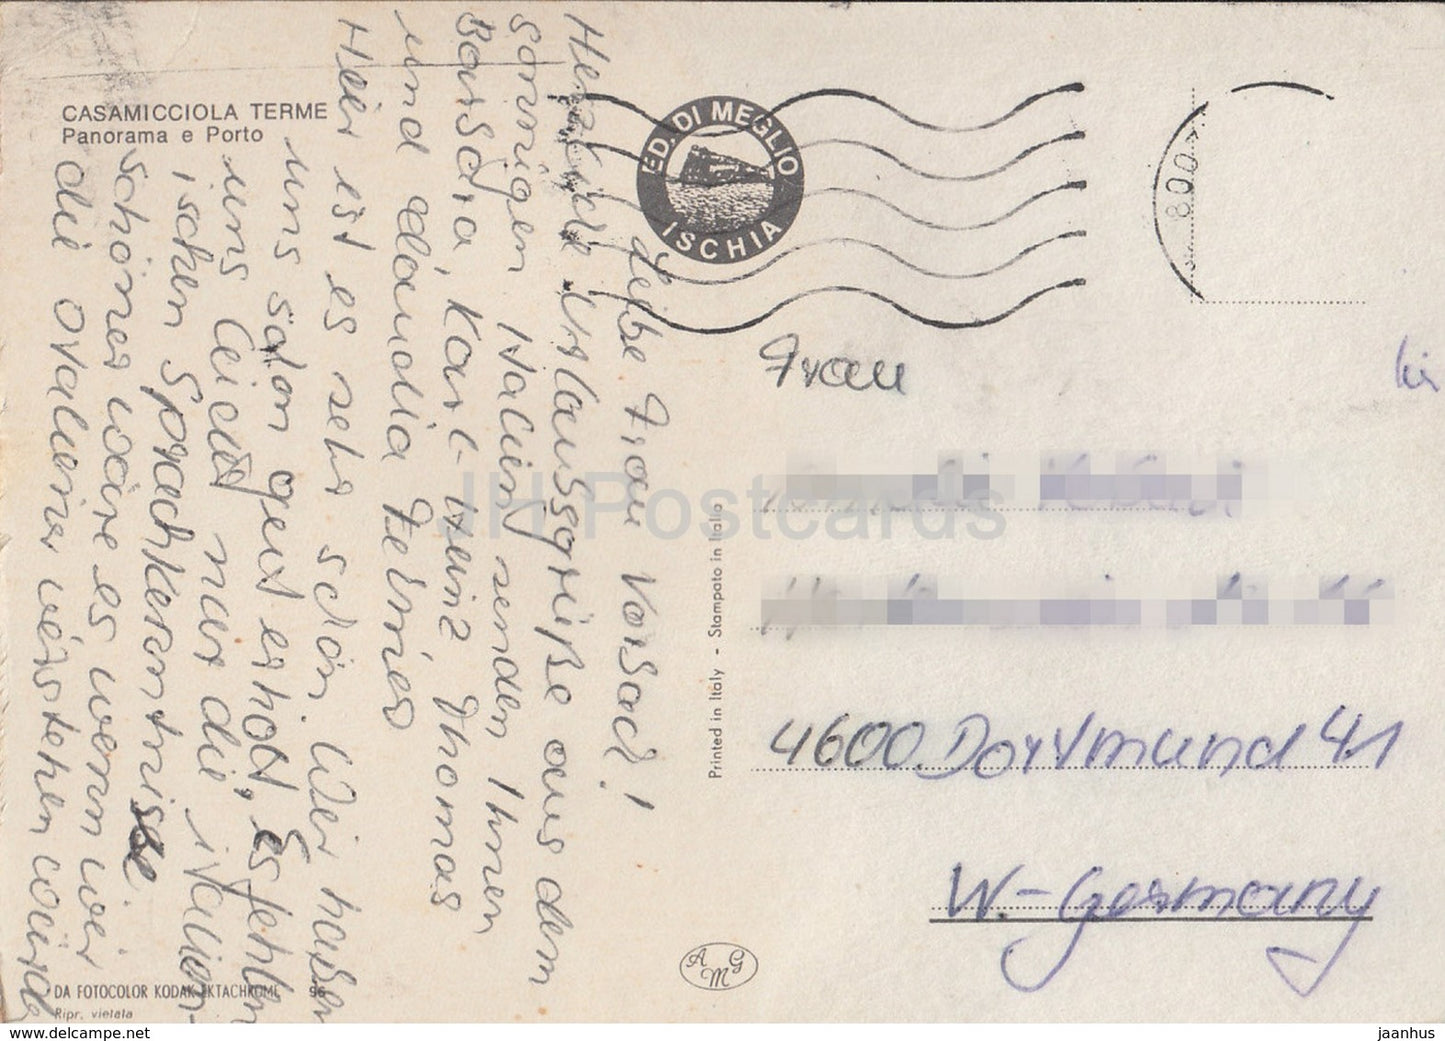 CASAMICCIOLA TERME
Panorama e Porto
ED. DI MEGLIO
ISCHIA
800
Liebe Frau Vorsad!
Herzliche Urlaubsgrüße aus dem
sonnigen Italien senden Ihnen
Barbara, Karl-Heinz, Thomas
und Claudia
Hier ist es sehr schön. Wir haben
uns schon gut erholt, Es fehlen
uns leider nur die italien-
ischen Sprachkenntnisse.
schöner wäre es wenn wir
die Italiener verstehen würden
Frau
4600 Dortmund 41
W.-Germany
Printed in Italy - Stampato in Italia
AMG
DA FOTOCOLOR KODAK EKTACHROME 96
Ripr. vietata
JH Postcards
www.delcampe.net
jaanhus